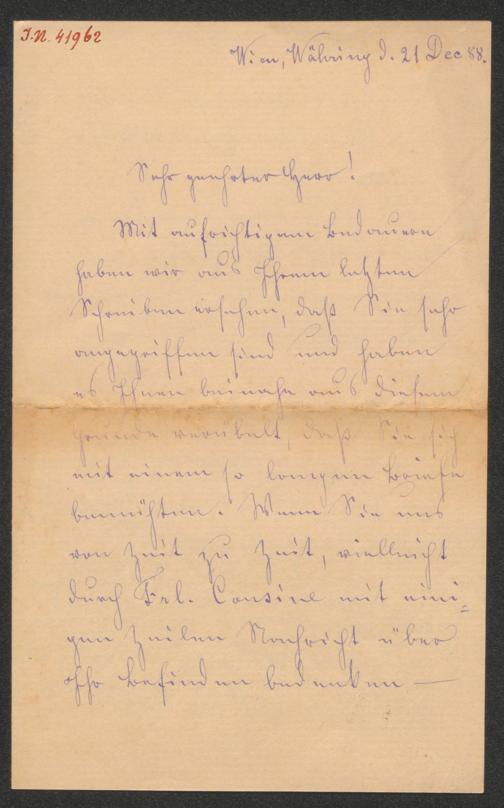 I.N. 41962
Wien, Währing d. 21 Dec 88.
Sehr geehrter Herr!
Mit aufrichtigem Bedauern
haben wir aus Ihrem letzten
Schreiben ersehen, daß Sie sehr
angegriffen sind und haben
es Ihnen beinahe aus diesem
Grunde verübelt, daß Sie sich
mit einem so langen Briefe
bemühten. Wenn Sie uns
von Zeit zu Zeit, vielleicht
durch Frl. Cousine mit eini-
gen Zeilen Nachricht über
Ihr Befinden bedenken —